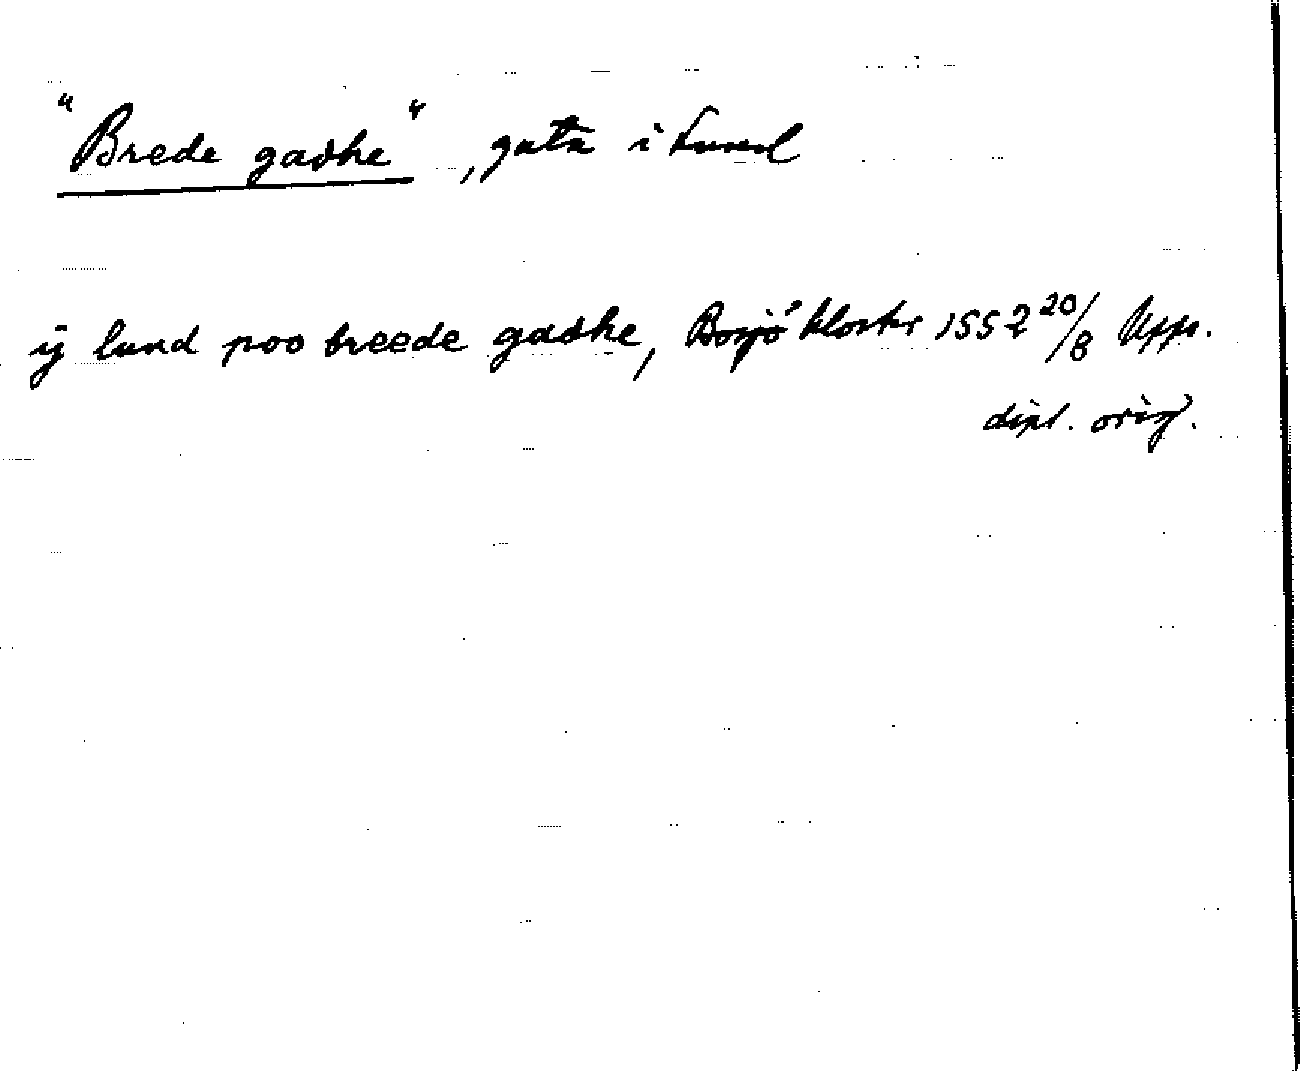 "Brede gadhe", gata i Lund
ij lund poo breede gadhe, Bosjö kloster 1552 20/8 Upps.
dipl. orig.